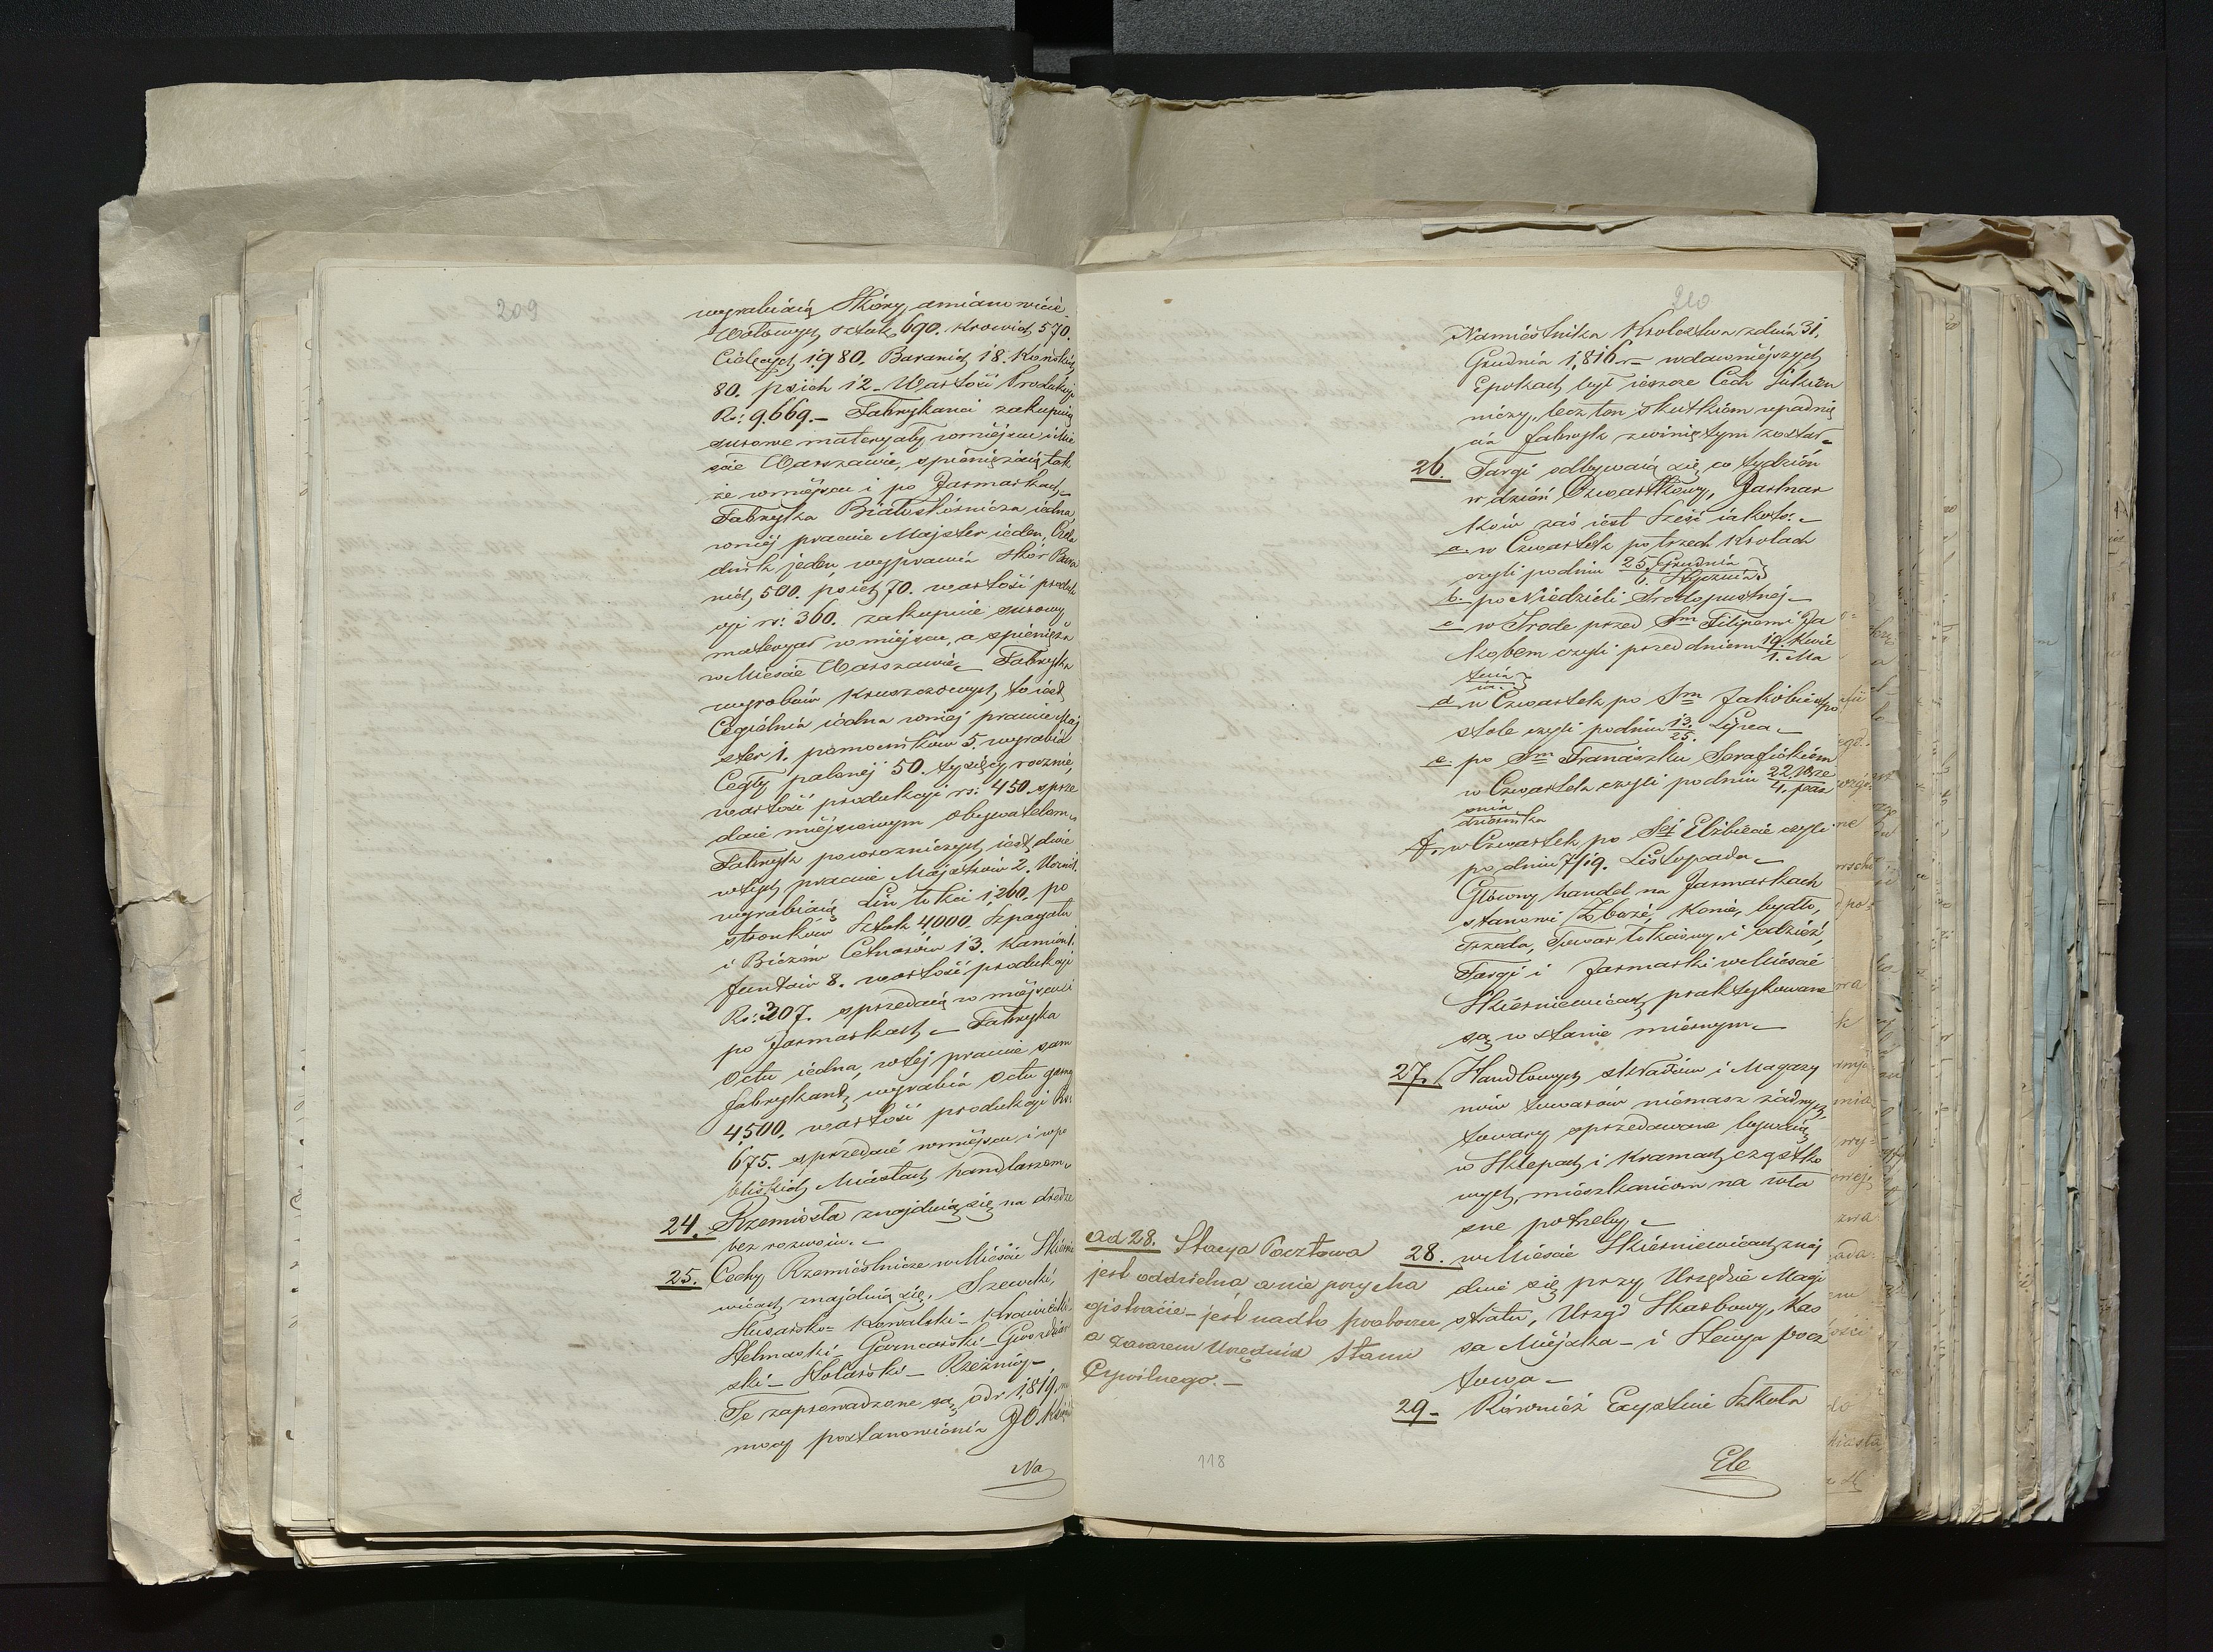 209
wyrabiaią Skóry, amianowicie
Wołowych sztuk 690. Krowich 570.
Cielęcych 1,980. Baranich 18. Końskich
80. psich 12 - Wartość Produkcyi
Rs: 9,669. - Fabrykanci zakupuią
surowe materyały wmiejscu i Mie
ście Warszawie, spieniężaią tak
że wmiejscu i po Jarmarkach -
Fabryka Białoskórnicza iedna
wniéj pracuie Majster ieden, Czela
dnik jeden, wyprawia skór Bara
nich 500. psich 70. wartość produk
cyi rs: 360. zakupuie surowy
materyał wmiejscu, a spienięża
w Mieście Warszawie - Fabryka
wyrobów Kruszcowych, to iest
Cegielnia iedna wniéj pracuie Maj
ster 1. pomocników 5. wyrabia
Cegły palonéj 50. tysięcy rocznie,
wartość produkcyi rs: 450. sprze
daie miejscowym Obywatelom -
Fabryk powrozniczych iest dwie
wtych pracuie Majstrów 2.
wyrabiaią Lin łokci 1,260. po
stronków Sztuk 4000. Szpagatu
i Biczów Cetnarów 13. Kamieni 1.
funtów 8. wartość produkcyi
Rs: 307. sprzedaią w miejscu i
po Jarmarkach - Fabryka
Octu iedna, wtéj pracuie sam
fabrykant, wyrabia Octu garncy
4,500. wartość produkcyi Rs:
675. sprzedaie wmiejscu i wpo
bliskich Miastach handlarzom -
24. Rzemiosła znajduią się na drodze
bez rozwoiu. -
25. Cechy Rzemieślnicze w Mieście Skiernie
wicach znajduią się, Szewcki,
Slusarsko - Kowalski - Krawiecki -
Stelmaski - Garncarski - Gwozdziar
ski - Stolarski - Rzeźniczy -
Te zaprowadzone są od r 1,819, na
mocy postanowienia JO. Księcia
Na
210
Namiestnika Królestwa zdnia 31.
Grudnia 1,816 r - wdawniejszych
Epokach był ieszcze Cech Sukien
niczy, lecz ten skutkiem upadnię
cia fabryk zwiniętym został -
26. Targi odbywaią się co tydzień
w dzień Czwartkowy, Jarmar
ków zaś iest Sześć iakoto: -
a. w Czwartek po trzech Królach
czyli po dniu 25. Grudnia / 6. Stycznia
b. po Niedzieli Srodopostnéj -
c w Srode przed Sm Filipem i Ja
kóbem czyli przed dniem 19. Kwie / 1. Ma
tnia / ia.
d w Czwartek po Sm Jakóbie Apo
stole czyli po dniu 13. / 25. Lipca -
e. po Sm Franciszku Serafickiém
w Czwartek czyli po dniu 22 Wrze / 4. paz
śnia / dziernika
f. w Czwartek po Séj Elżbiecie czyli
po dniu 7/19. Listopada -
Główny handel na Jarmarkach
stanowi Zboże, Konie, bydło,
Trzoda, Towar łokciowy, i odzież,
Targi i Jarmarki w Mieście
Skierniewicach praktykowane
są w stanie miernym -
27. Handlowych składów i Magazy
nów towarów niemasz żadnych,
towary sprzedawane bywaią
w Sklepach i Kramach cząstko
wych, mieszkańcom na wła
sne potrzeby -
28. w Mieście Skierniewicach znaj
duie się przy Urzędzie Magi
stratu, Urząd Skarbowy, Kas
sa Miejska - i Stacya pocz
towa -
29 - Również Exystuie Szkoła
Ele
Ad 28. Stacya Pocztowa
jest oddzielną a nie przy Ma
gistracie - jest nadto proboszcz
a zarazem Urzędnik Stanu
Cywilnego. -
118